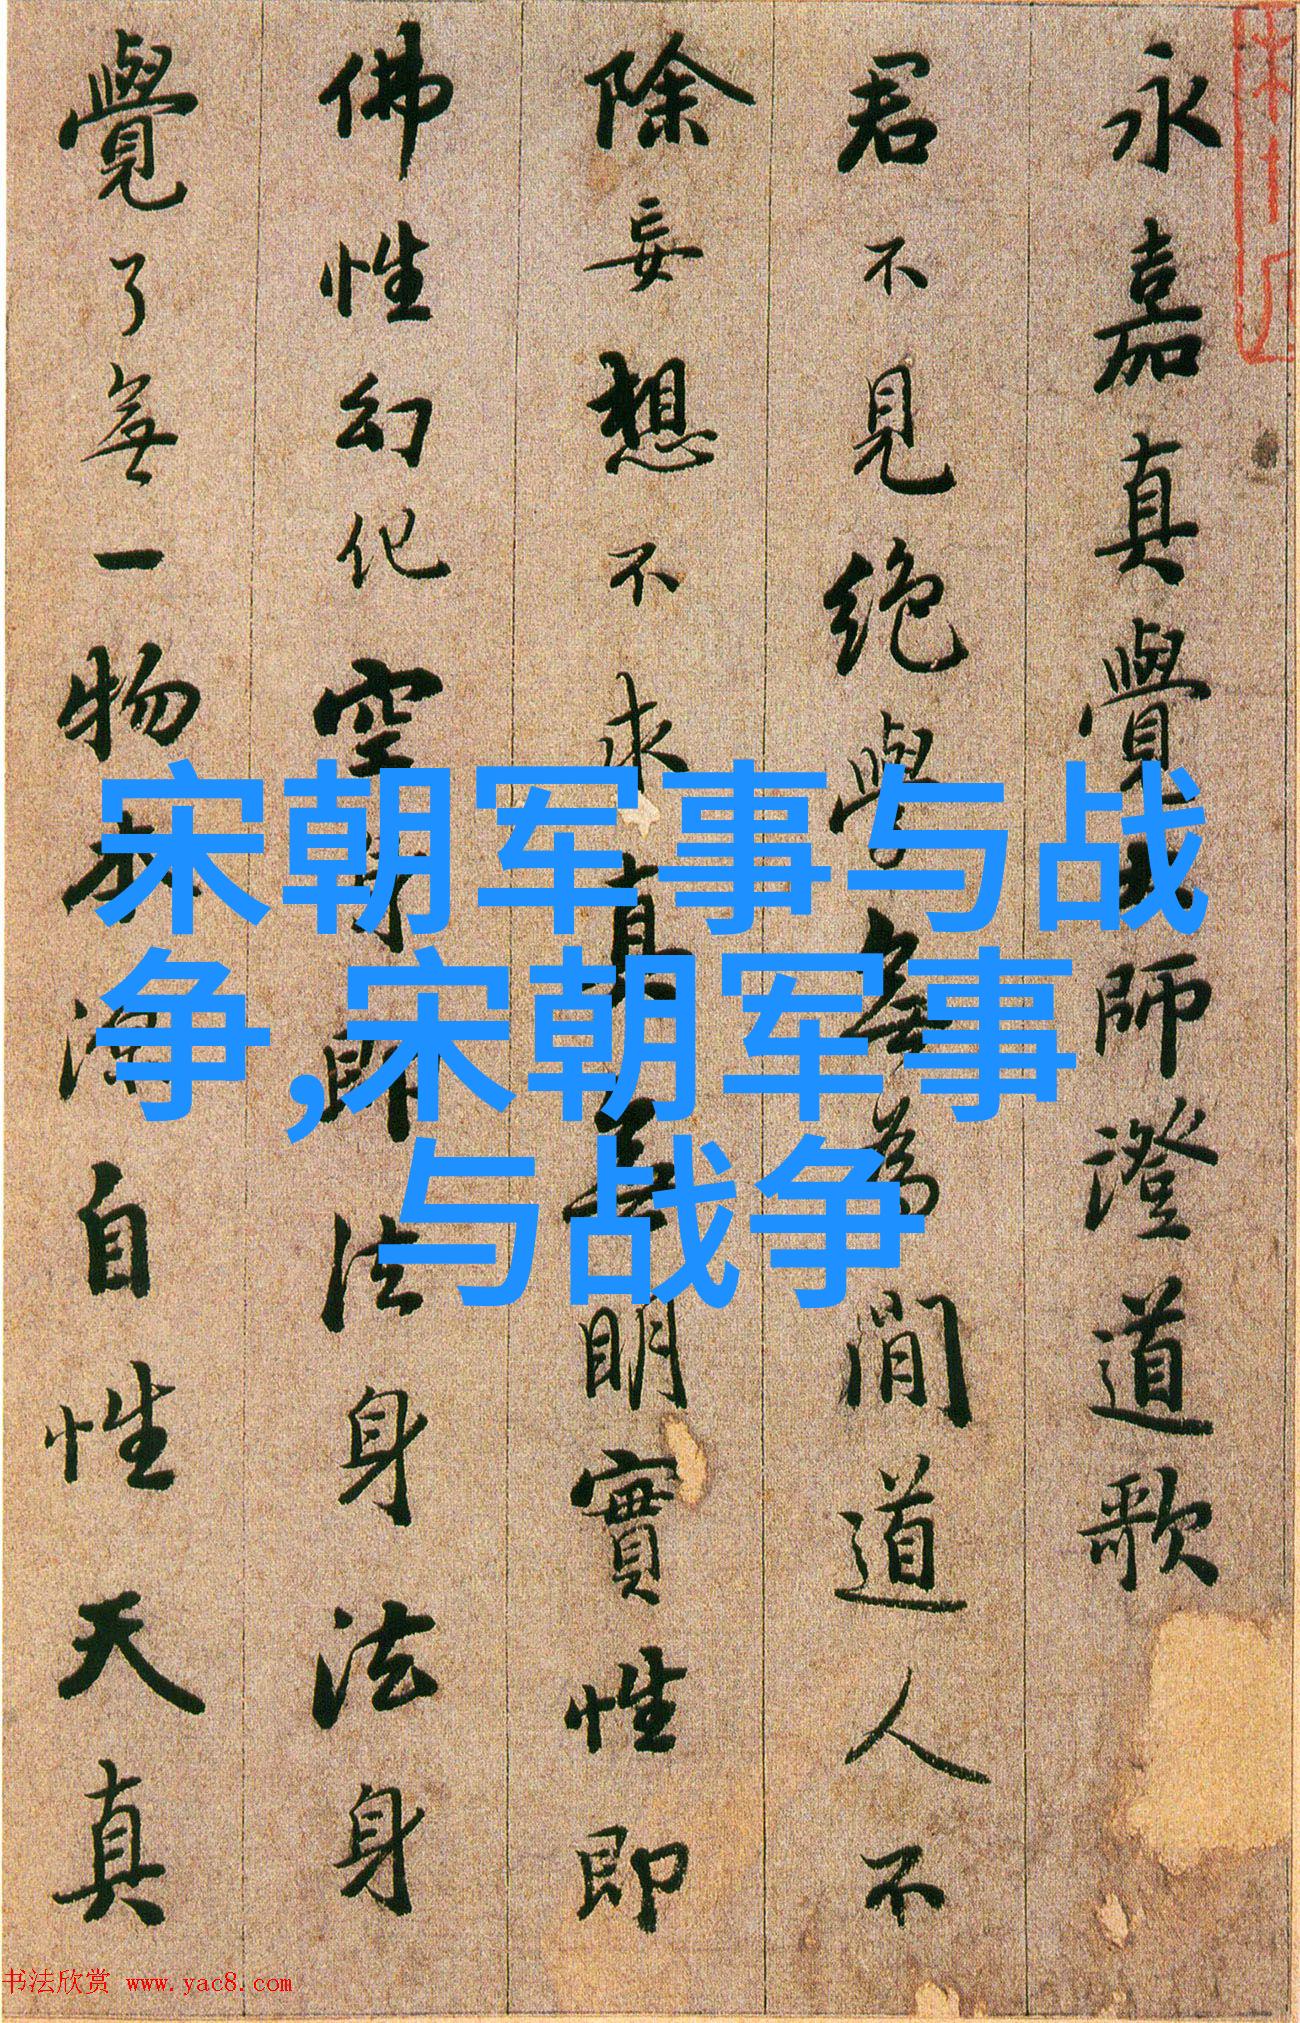 永嘉真覺大師證道歌
君不見絕學無為閒道人不
除妄想不求真無明實性即
佛性幻化空身即法身法身
覺了無一物本源自性天真
宋朝军事与战
争,宋朝军事
与战争
书法欣赏 www.yac8.com